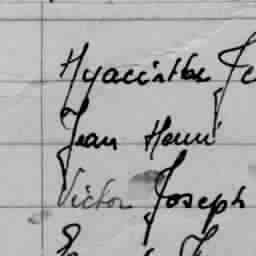 Hyacinthe Je
Jean Henri
Victor Joseph